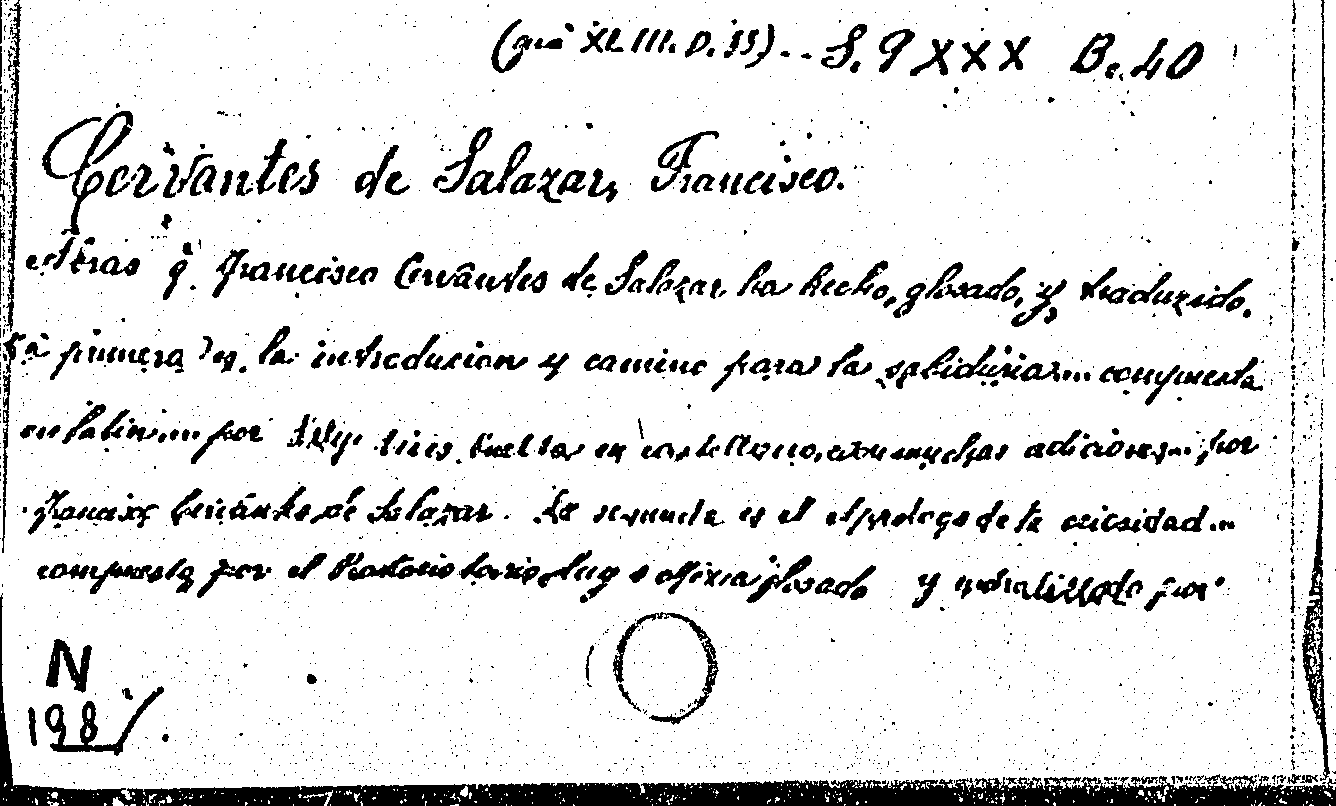 (già XL.III.D.35)... S. 9 XXX B. 40
Cervantes de Salazar, Francisco.
Obras q̃. Francisco Cervantes de Salazar ha hecho, glosado, y, traduzido.
La primera es, la introducion y camino para la sabiduria.... compuesta
en latin.... por vives, vuelta en castellano, con muchas adiciones... por
Francisco Cervantes de Salazar. La segunda es el el prologo de la ociosidad...
compuesta por el glosado y moralizado por
N
198